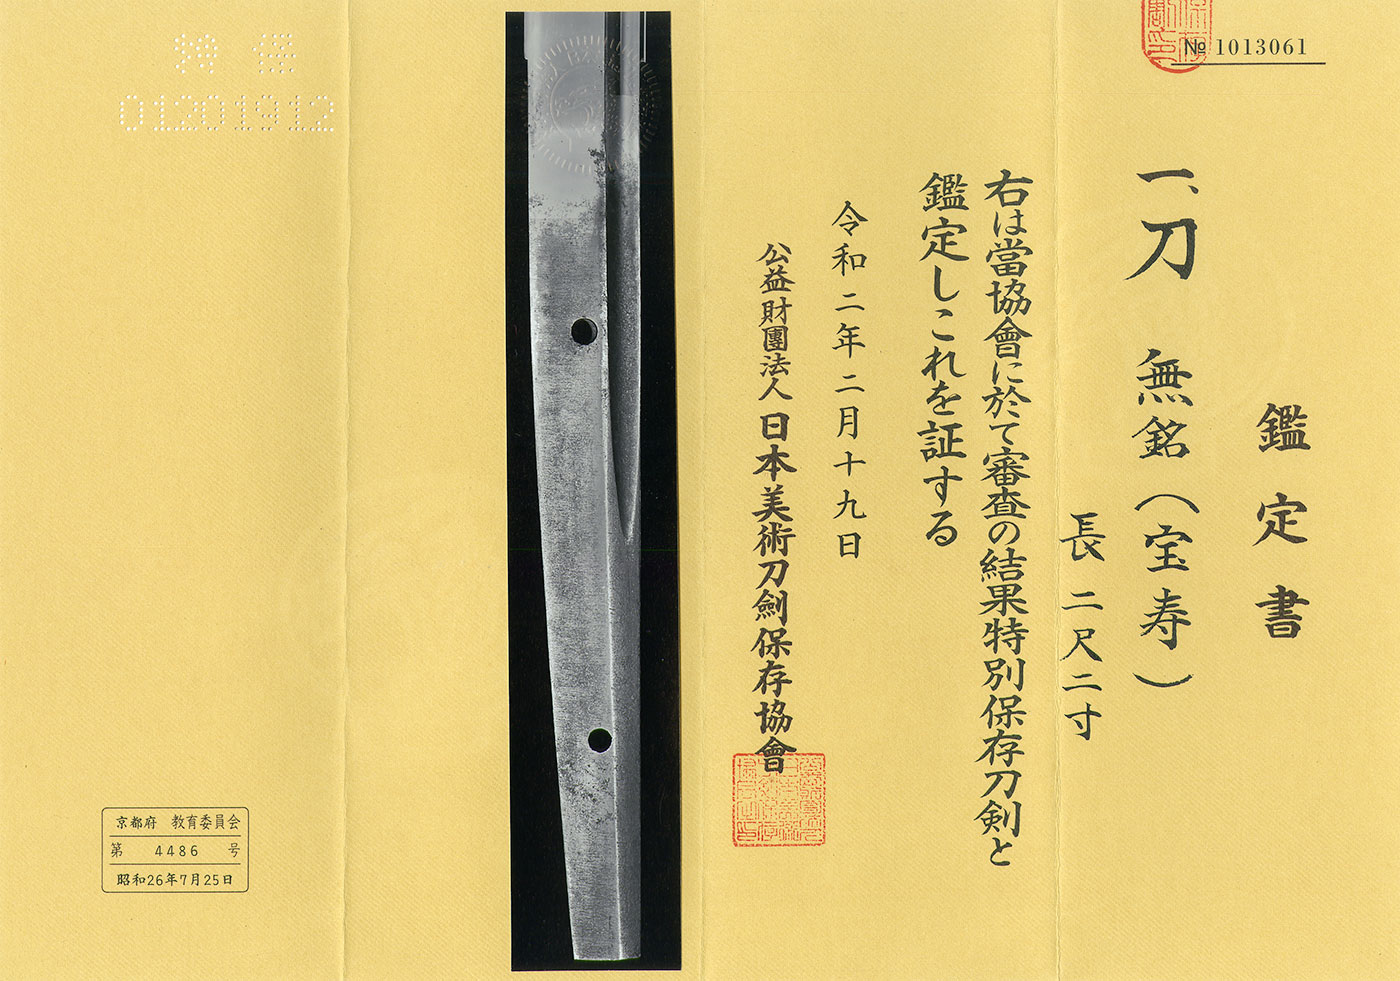 № 1013061
鑑定書
一、刀 無銘(宝寿)
長二尺二寸
右は當協會に於て審査の結果特別保存刀剣と
鑑定しこれを証する
令和二年二月十九日
公益財團法人日本美術刀劍保存協會
特保
01201912
京都府 教育委員会
第 4486 号
昭和26年7月25日